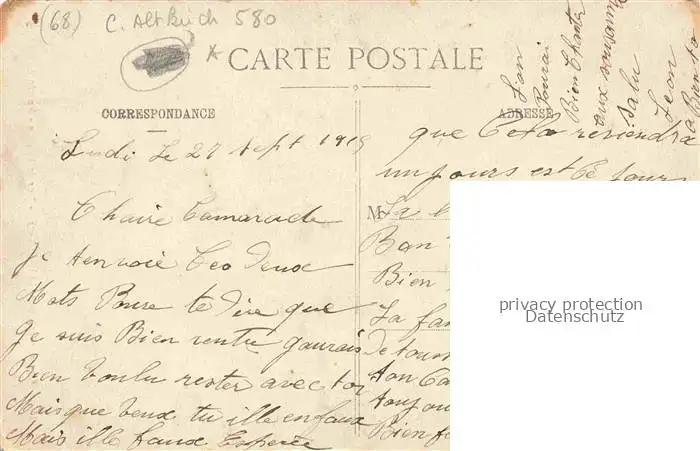 (68) C. Altkirch 580
CARTE POSTALE
CORRESPONDANCE
ADRESSE
Lundi Le 27 Sept 1919
Chaire Camarade
Je tenvoie Ceo deux
Mots Poure te dire que
Je suis Bien rentre jaurais
Bien voulu rester avec toi
Mais que veux tu ille en faux
Mais ille faux Esperée
que Cela reviendra
un jours est Ce jour
M
La
Bon
Bien
La fa
de tous
ton Ca
toujou
Bien
Bien Chanta
aux
Salu
Leon
privacy protection
Datenschutz